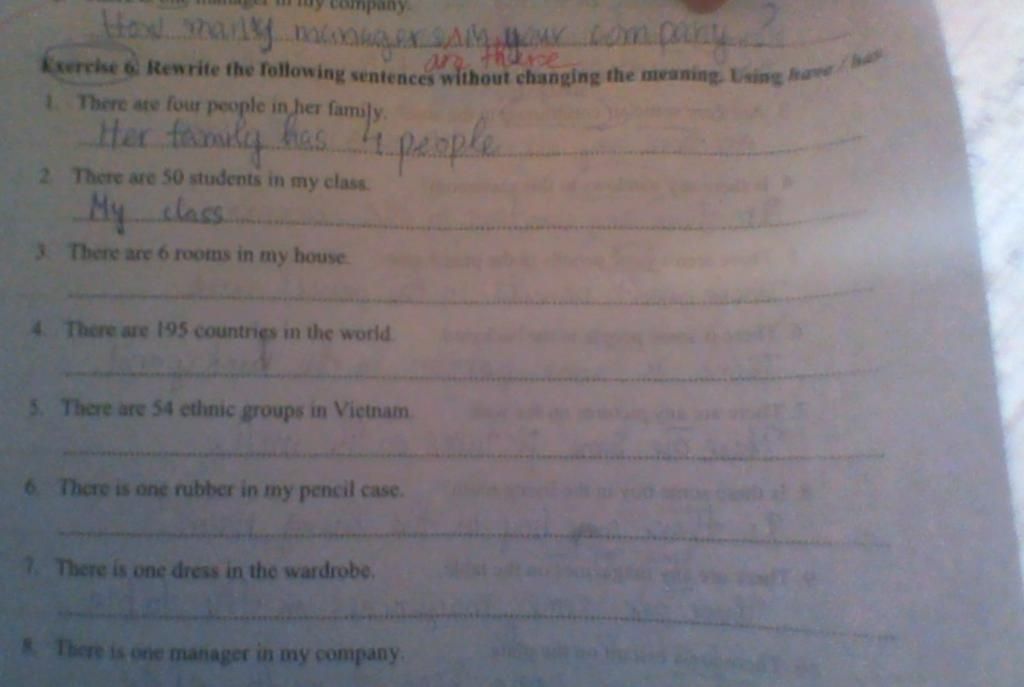 manager in my company.
How many managers in your company?
are there
Exercise 6. Rewrite the following sentences without changing the meaning. Using have / has
1. There are four people in her family.
Her family has 4 people
2. There are 50 students in my class.
My class
3. There are 6 rooms in my house.
4. There are 195 countries in the world.
5. There are 54 ethnic groups in Vietnam.
6. There is one rubber in my pencil case.
7. There is one dress in the wardrobe.
8. There is one manager in my company.